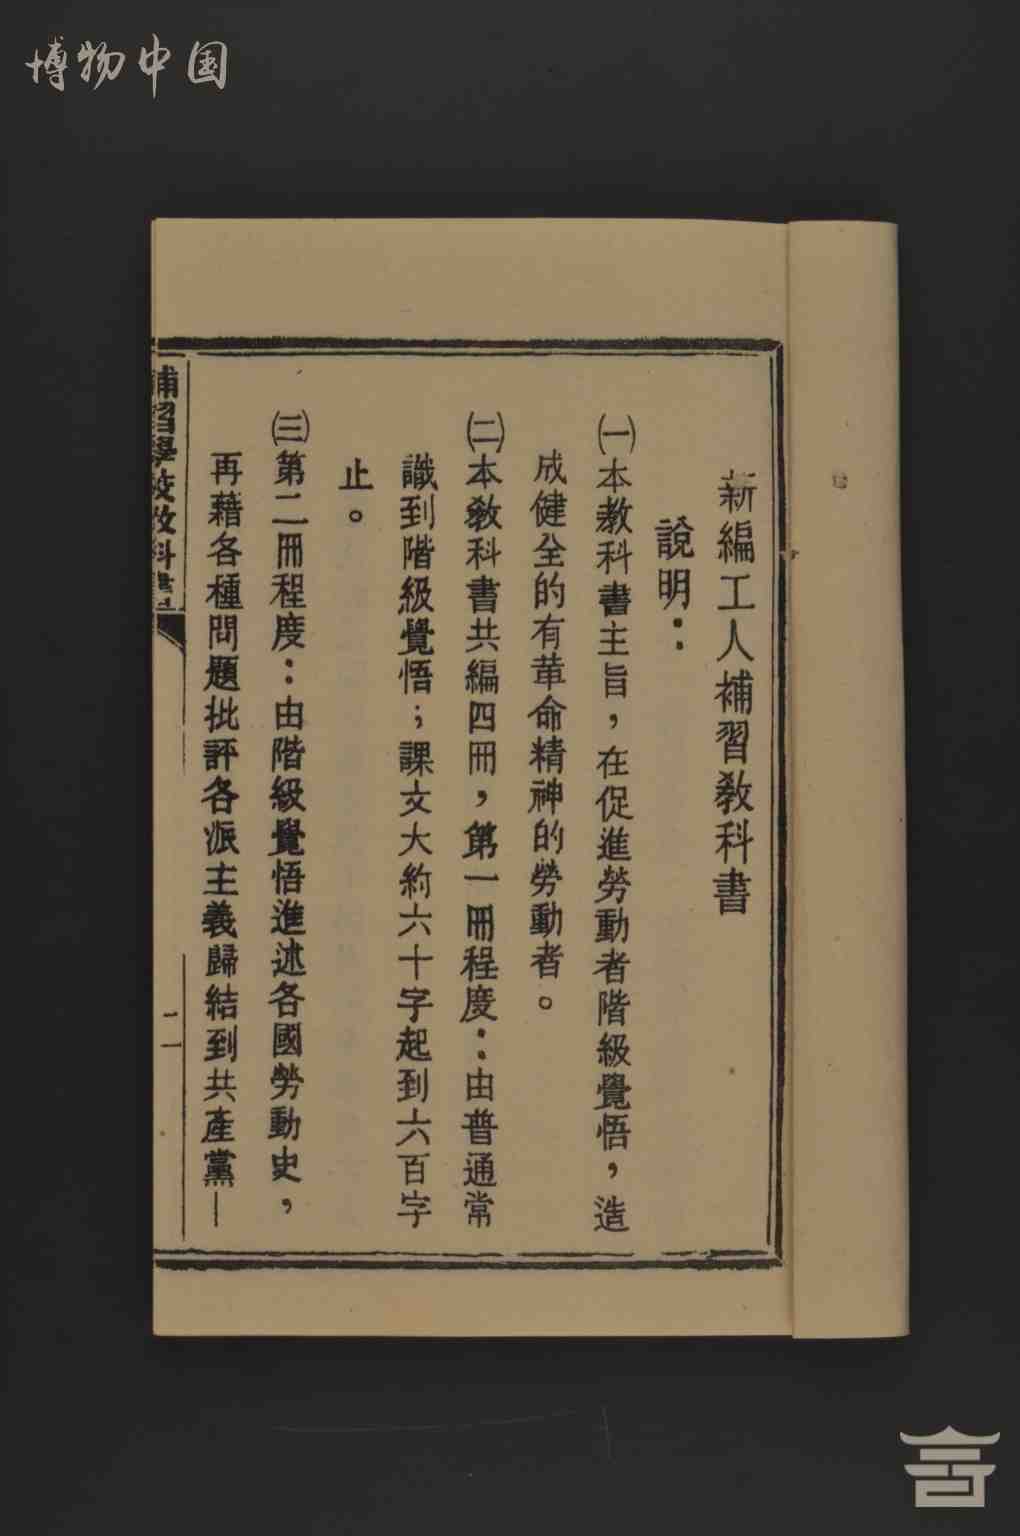 博物中国
新編工人補習教科書
說明：
㈠本教科書主旨，在促進勞動者階級覺悟，造
成健全的有革命精神的勞動者。
㈡本教科書共編四冊，第一冊程度：由普通常
識到階級覺悟；課文大約六十字起到六百字
止。
㈢第二冊程度：由階級覺悟進述各國勞動史，
再藉各種問題批評各派主義歸結到共產黨—
補習學校教科書
二